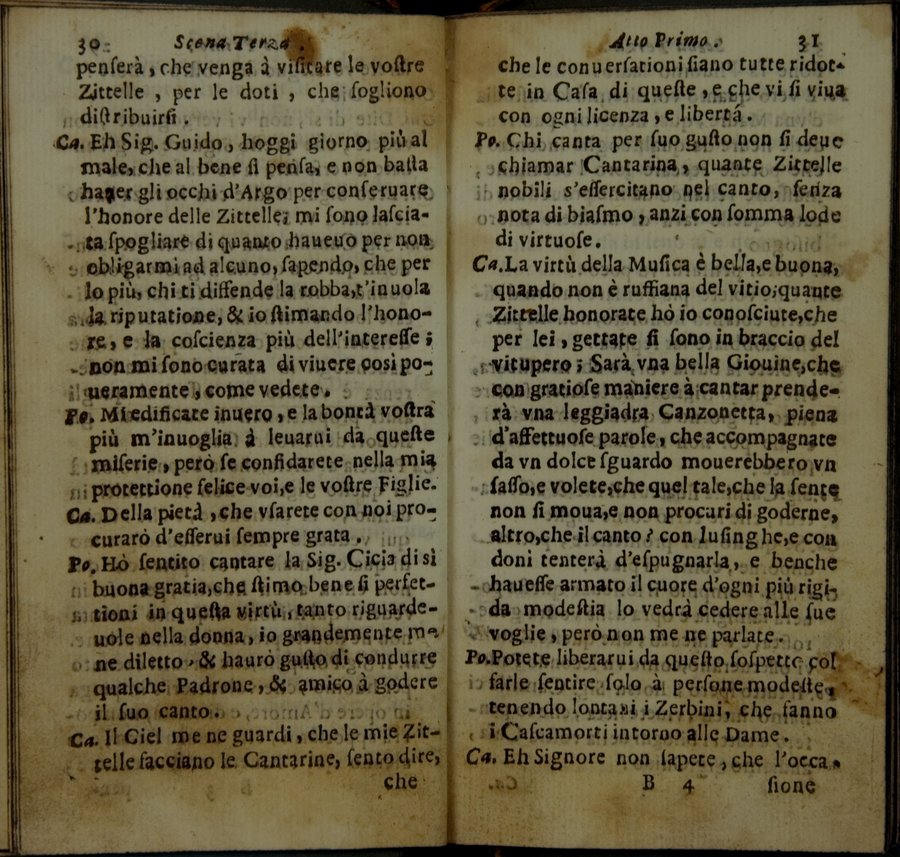 30 Scena Terza.
penserà, che venga à visitare le vostre
Zittelle, per le doti, che sogliono
distribuirsi.
Ca. Eh Sig. Guido, hoggi giorno più al
male, che al bene si pensa, e non basta
hauer gli occhi d'Argo per conseruare
l'honore delle Zittelle; mi sono lascia-
ta spogliare di quanto haueuo per non
obligarmi ad alcuno, sapendo, che per
lo più, chi ti diffende la robba, t'inuola
la riputatione, & io stimando l'hono-
re, e la coscienza più dell'interesse;
non mi sono curata di viuere così po-
ueramente, come vedete.
Po. Mi edificate inuero, e la bontà vostra
più m'inuoglia à leuarui da queste
miserie, però se confidarete nella mia
protettione felice voi, e le vostre Figlie.
Ca. Della pietà, che vsarete con noi pro-
curarò d'esserui sempre grata.
Po. Hò sentito cantare la Sig. Cicia di sì
buona gratia, che stimo bene si perfet-
tioni in questa virtù, tanto riguarde-
uole nella donna, io grandemente me
ne diletto, & haurò gusto di condurre
qualche Padrone, & amico à godere
il suo canto.
Ca. Il Ciel me ne guardi, che le mie Zit-
telle facciano le Cantarine, sento dire,
che
Atto Primo. 31
che le conuersationi siano tutte ridot-
te in Casa di queste, e che vi si viua
con ogni licenza, e libertá.
Po. Chi canta per suo gusto non si deue
chiamar Cantarina, quante Zittelle
nobili s'essercitano nel canto, senza
nota di biasmo, anzi con somma lode
di virtuose.
Ca. La virtù della Musica è bella, e buona,
quando non è ruffiana del vitio; quante
Zittelle honorate hò io conosciute, che
per lei, gettate si sono in braccio del
vitupero; Sarà vna bella Giouine, che
con gratiose maniere à cantar prende-
rà vna leggiadra Canzonetta, piena
d'affettuose parole, che accompagnate
da vn dolce sguardo mouerebbero vn
sasso, e volete, che quel tale, che la sente
non si moua, e non procuri di goderne,
altro, che il canto? con lusinghe, e con
doni tenterà d'espugnarla, e benche
hauesse armato il cuore d'ogni più rigi-
da modestia lo vedrà cedere alle sue
voglie, però non me ne parlate.
Po. Potete liberarui da questo sospetto col
farle sentire solo à persone modeste,
tenendo lontani i Zerbini, che fanno
i Cascamorti intorno alle Dame.
Ca. Eh Signore non sapete, che l'occa-
B 4 sione